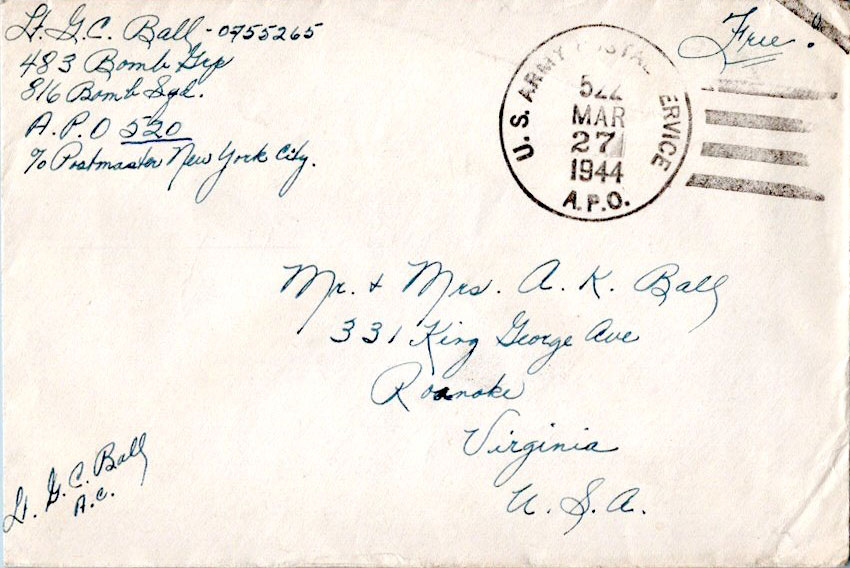 Lt. G.C. Ball - 0755265
483 Bomb Grp
816 Bomb Sqd.
A.P.O 520
% Postmaster New York City.
Free.
U.S. ARMY POSTAL SERVICE
522
MAR
27
1944
A.P.O.
Mr. & Mrs. A. K. Ball
331 King George Ave
Roanoke
Virginia
U. S. A.
Lt. G. C. Ball
A.C.